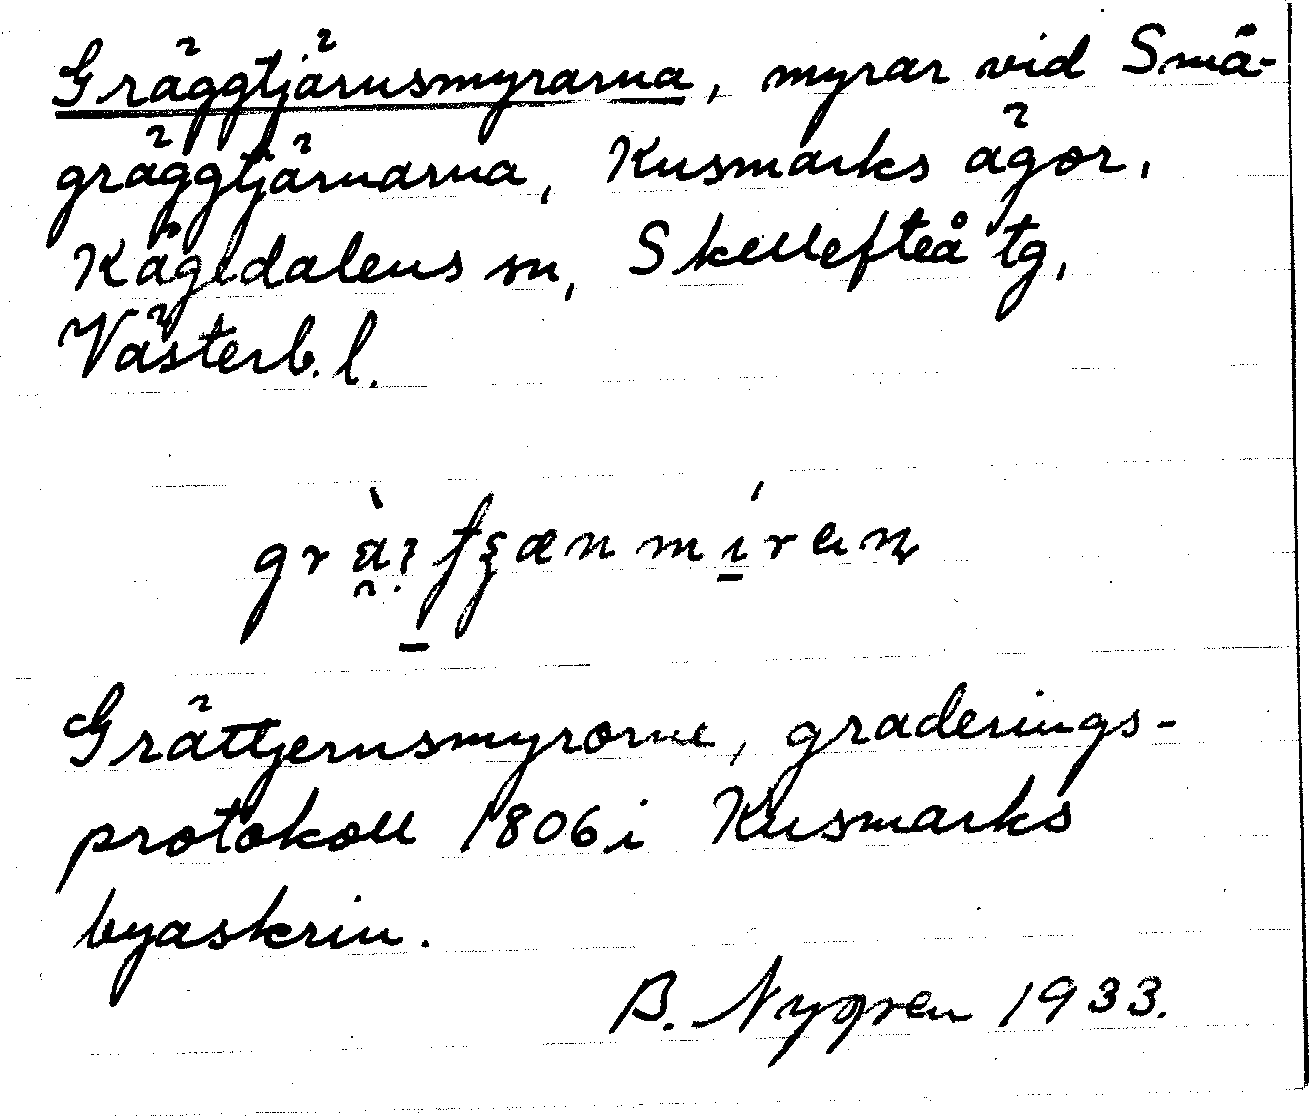 Gräggtjärnsmyrarna, myrar vid Små-
gräggtjärnarna, Kusmarks ägor,
Kågedalens sn, Skellefteå tg,
Västerb. l.
Grättjernsmyrorne, graderings-
protokoll 1806 i Kusmarks
byaskrin.
B. Nygren 1933.